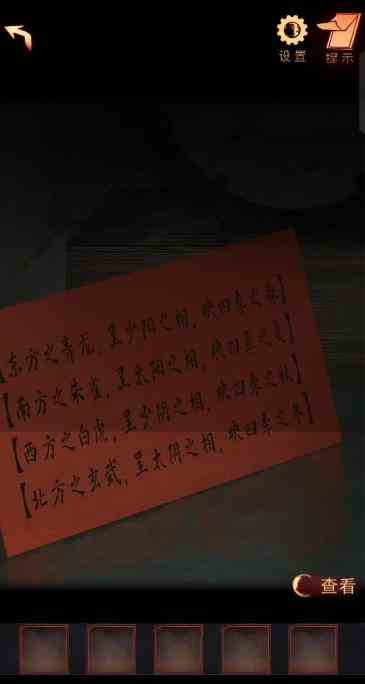 设置
提示
【东方之青龙，呈少阳之相，映四季之春】
【南方之朱雀，呈太阳之相，映四季之夏】
【西方之白虎，呈少阴之相，映四季之秋】
【北方之玄武，呈太阴之相，映四季之冬】
查看